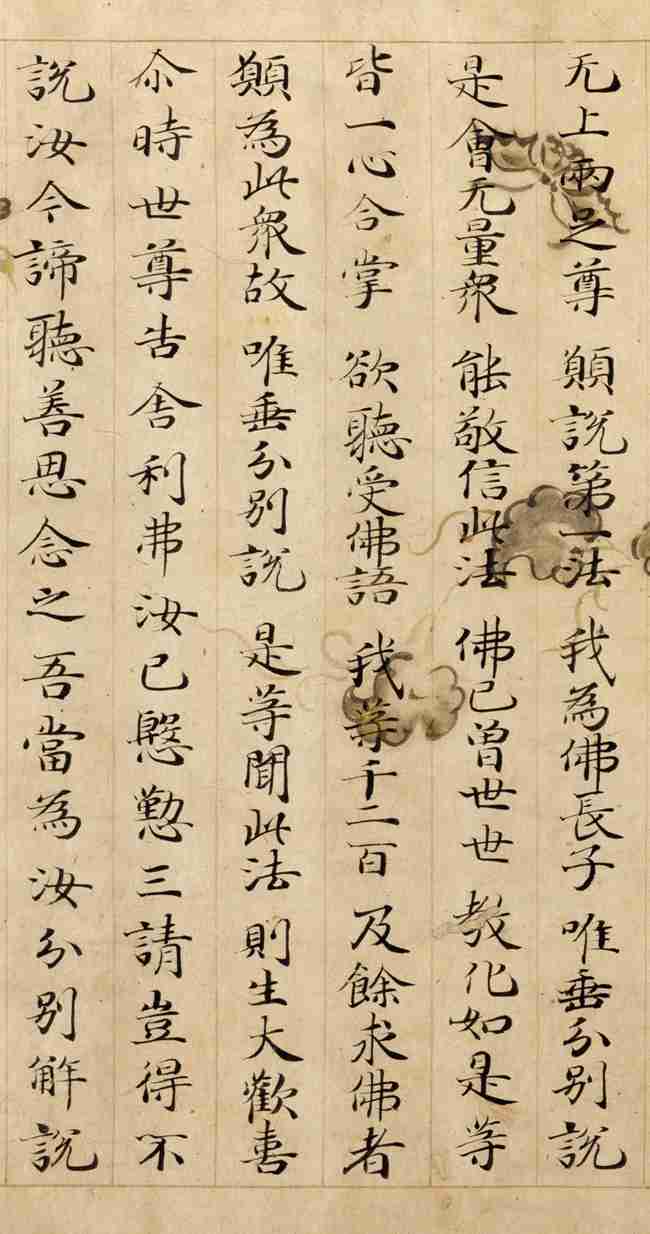 无上兩足尊 願說第一法 我為佛長子 唯垂分別說
是會无量衆 能敬信此法 佛已曾世世 教化如是等
皆一心合掌 欲聽受佛語 我等千二百 及餘求佛者
願為此衆故 唯垂分別說 是等聞此法 則生大歡喜
尒時世尊告舍利弗汝已慇懃三請豈得不
說汝今諦聽善思念之吾當為汝分別解說